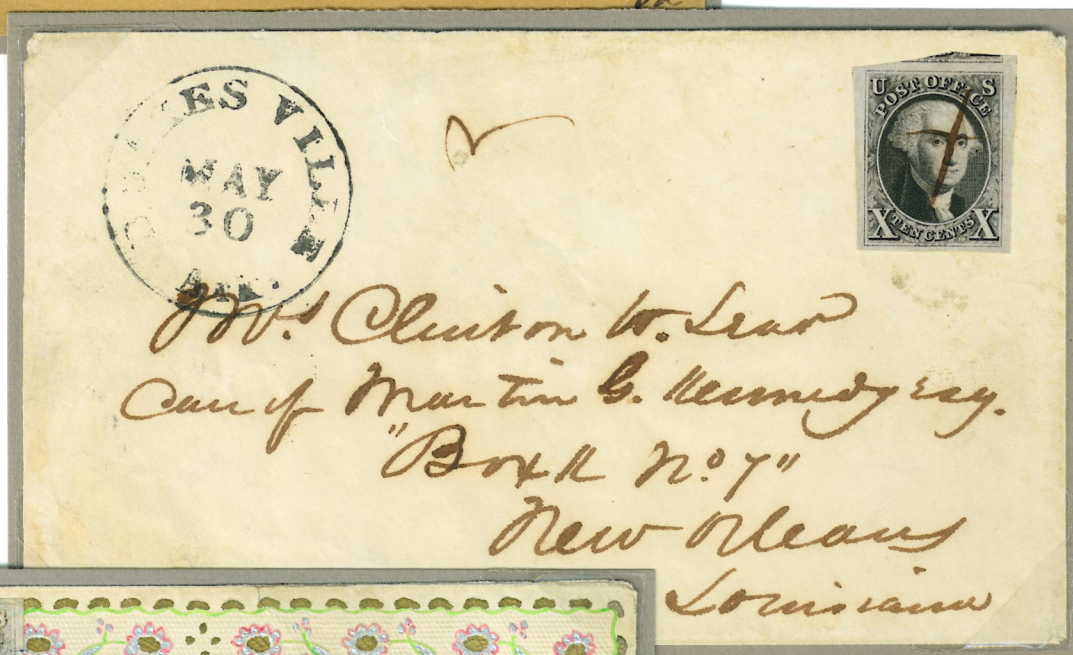 ES VILLE
MAY
30
Ark.
U S
POST OFFICE
X TEN CENTS X
Mrs Clinton W. Lear
Care of Martin G. Kennedy Esq.
"Box No. 7"
New Orleans
Louisiana